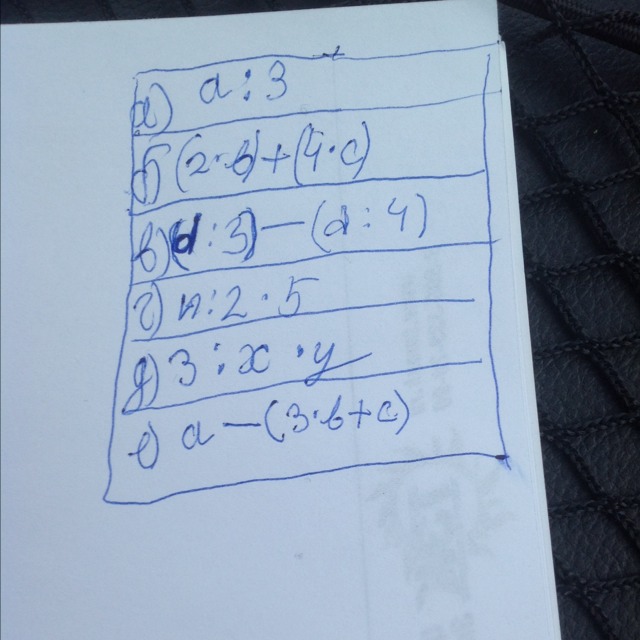 а) a : 3
б) (2·b)+(4·c)
в) (d : 3) — (d : 4)
г) n : 2 · 5
д) 3 : x · y
е) a — (3·b+c)